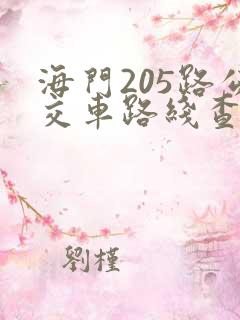 海門205路公
交車路綫查
劉槿